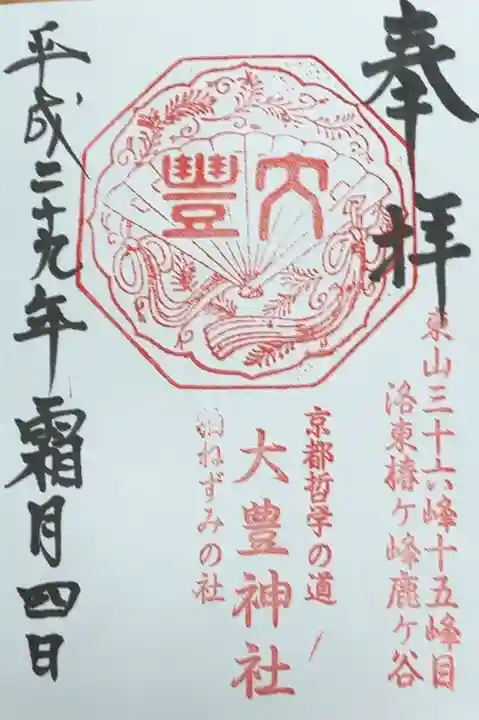 奉拝
東山三十六峰十五峰目
洛東椿ケ峰鹿ケ谷
大豐
京都哲学の道
大豊神社
ねずみの社
平成二十九年霜月四日